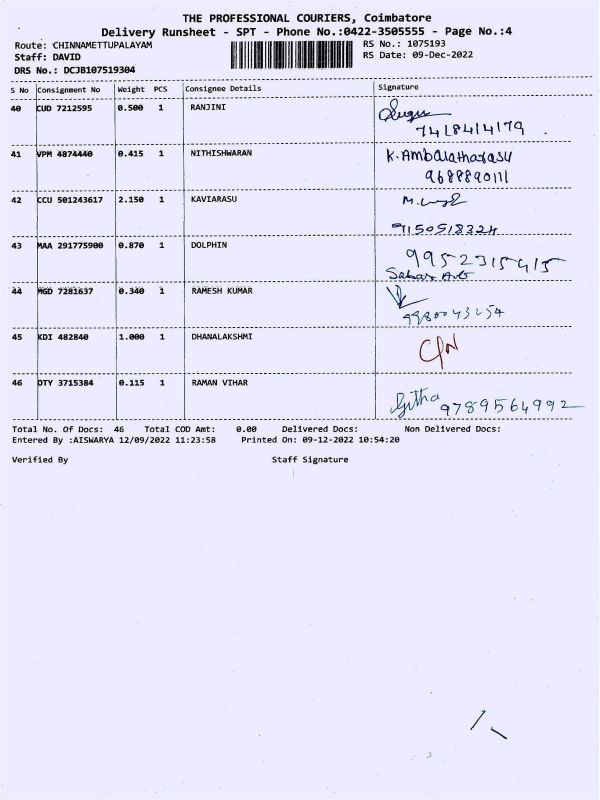 THE PROFESSIONAL COURIERS, Coimbatore
Delivery Runsheet - SPT - Phone No.:0422-3505555 - Page No.:4
Route: CHINNAMETTUPALAYAM RS No.: 1075193
Staff: DAVID RS Date: 09-Dec-2022
DRS No.: DCJB107519304
S No Consignment No Weight PCS Consignee Details Signature
40 CUD 7212595 0.500 1 RANJINI
7418414179
41 VPM 4874440 0.415 1 NITHISHWARAN K. Ambalatharasu
9688890111
42 CCU 501243617 2.150 1 KAVIARASU M.
9150518324
43 MAA 291775900 0.870 1 DOLPHIN 9952315415
44 MGD 7281637 0.340 1 RAMESH KUMAR
9980043254
45 KDI 482840 1.000 1 DHANALAKSHMI C/N
46 OTY 3715384 0.115 1 RAMAN VIHAR
Githa 9789564992
Total No. Of Docs: 46 Total COD Amt: 0.00 Delivered Docs: Non Delivered Docs:
Entered By :AISWARYA 12/09/2022 11:23:58 Printed On: 09-12-2022 10:54:20
Verified By Staff Signature